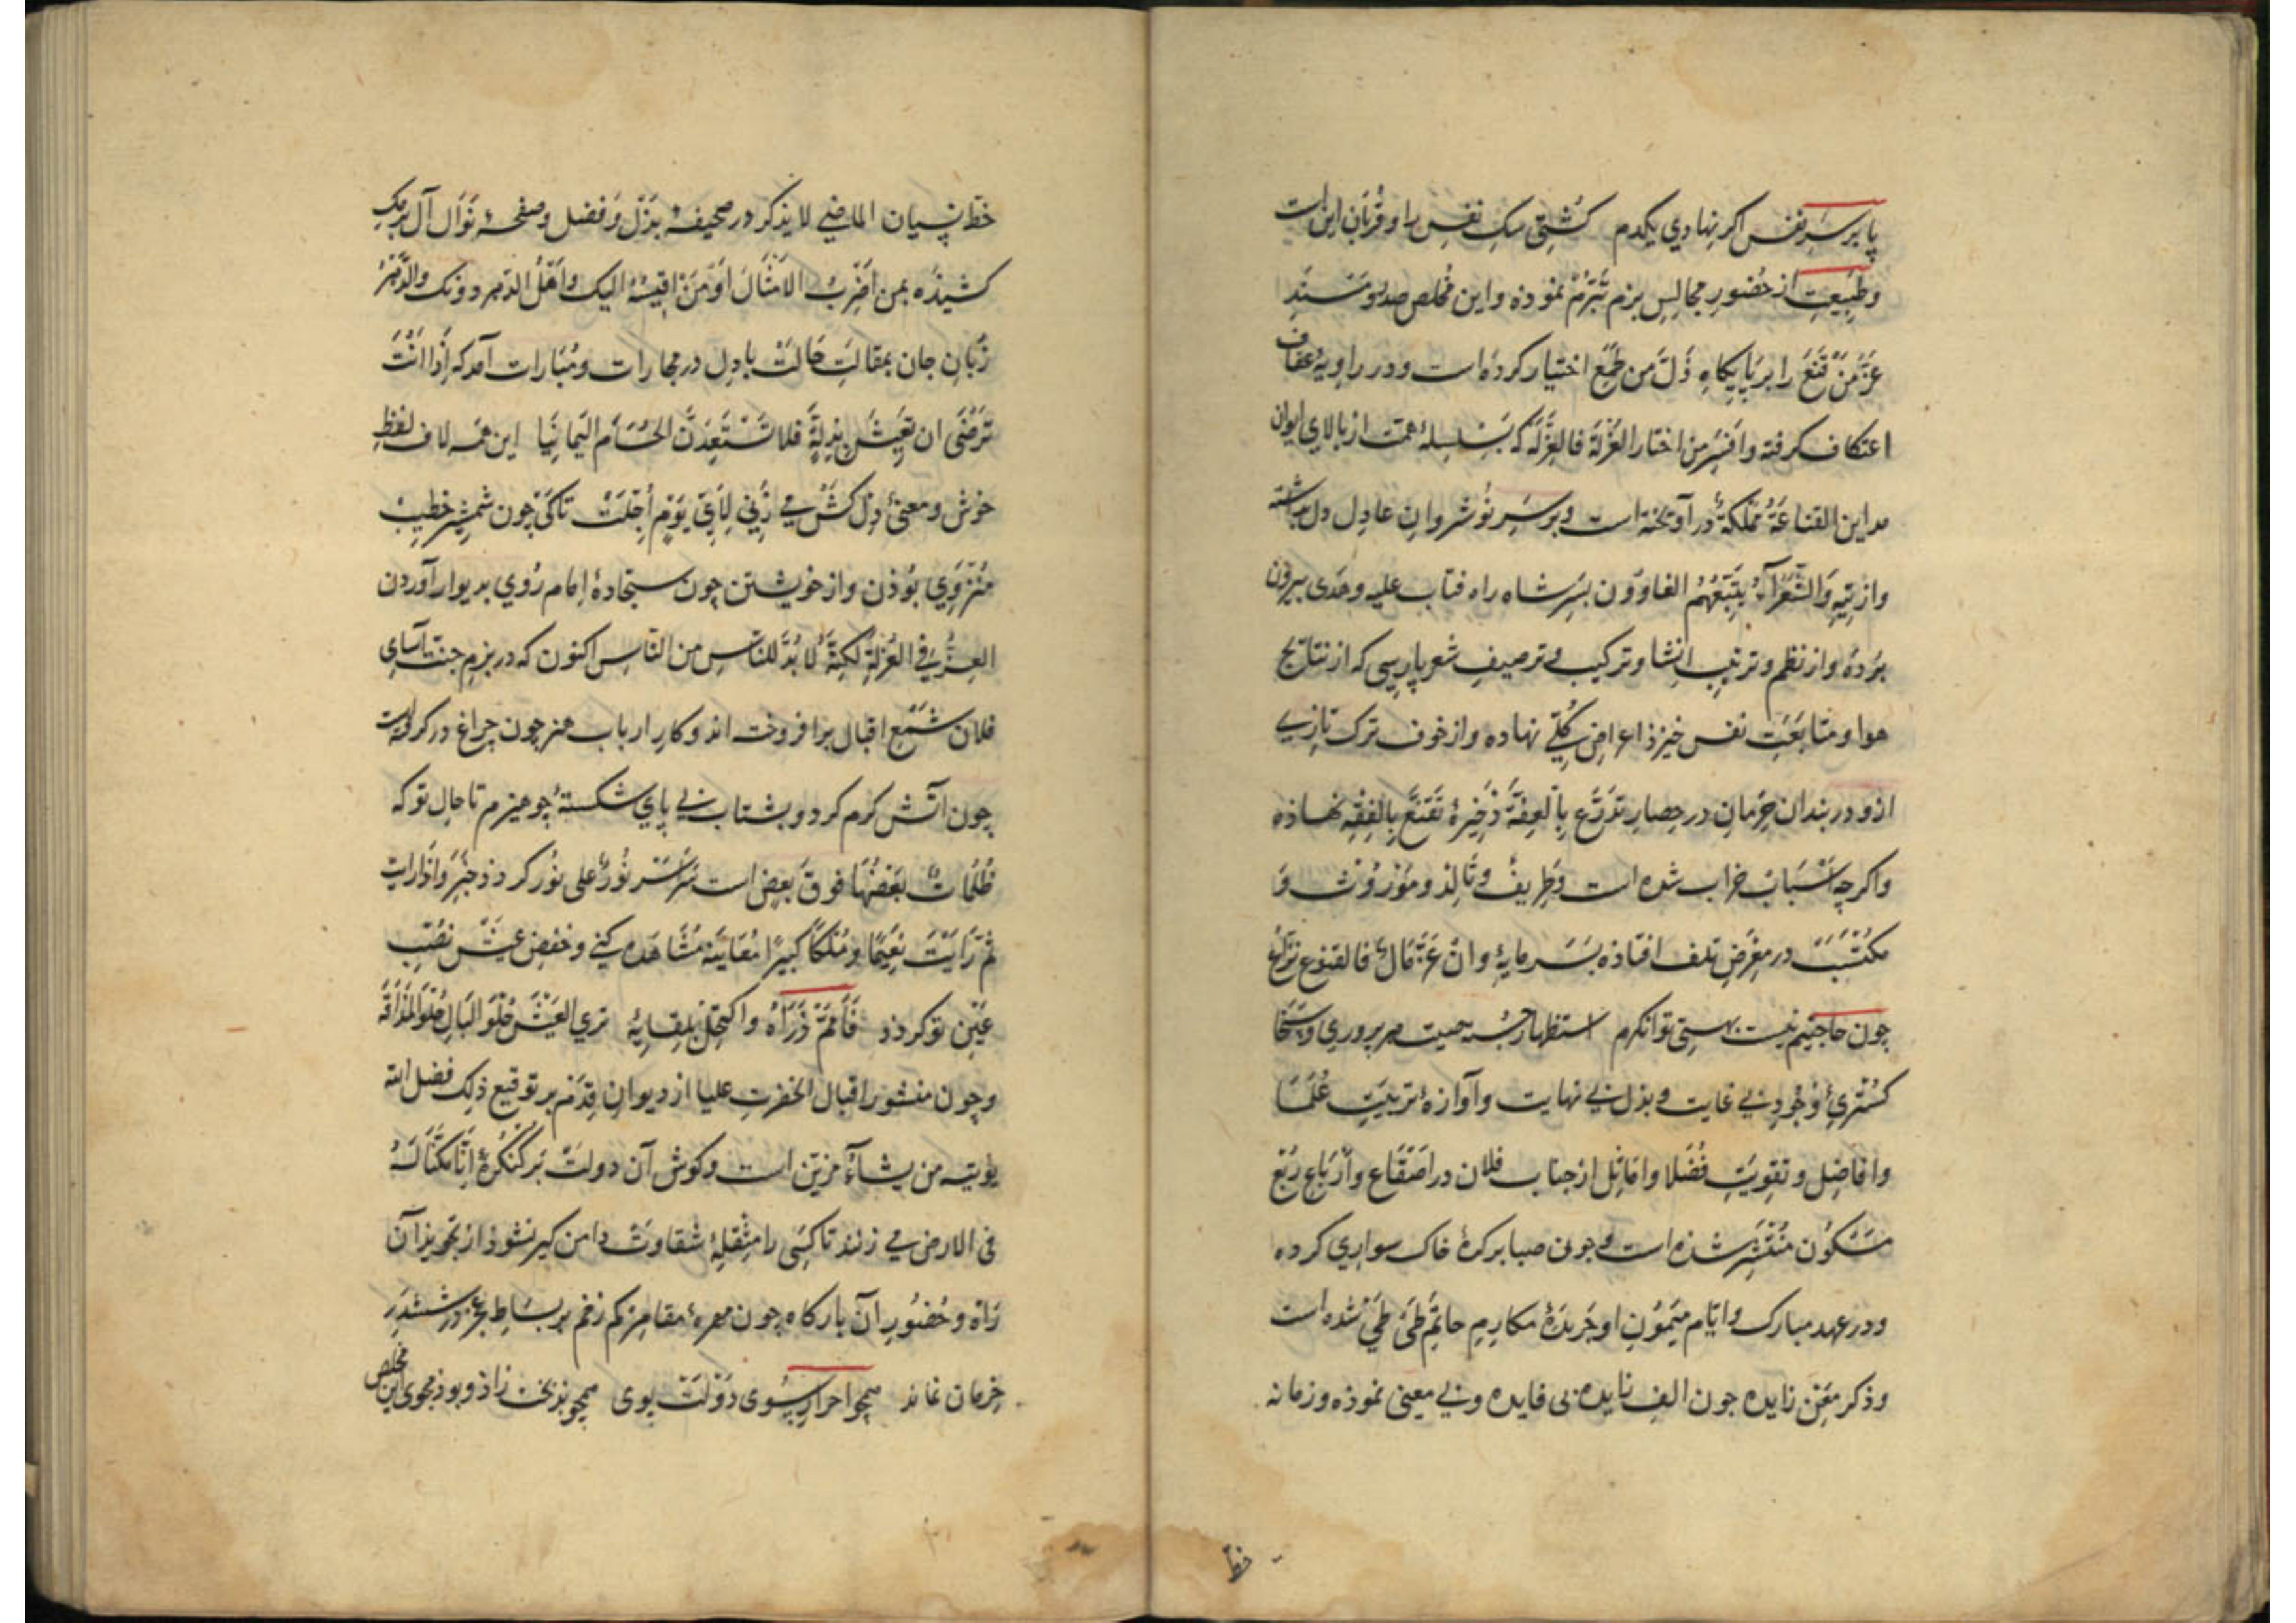 پا بر سر نفس اگر نهادی یکدم کشتی سک نفس را و قربان این است
و طبیعت از حضور مجالس بزم تبرم نموده و این مخلص صدر و مسند
عَزَّ مَنْ قَنَعَ را بر پایکاهِ ذَلَّ من طمع اختیار کرده است و در زاویهٔ عفاف
اعتکاف کرفته و افسر من اختار العُزلة فالعِزُّ لَه که بسلسلهٔ همت از بالای ایوان
مداین القناعَةُ مملکةٌ درآویخته است و بر سر نوشروان عادل دل داشته
و از تیهِ وَالشُّعَرَآءُ یَتَّبِعُهُمُ الغاوون بسر شاه راه فتاب علیه و هدی بیرون
برده و از نظم و ترتیب انشا و ترکیب و ترصیف شعر پارسی که از نتایج
هوا و متابعتِ نفس خیزد اعراض کلّی نهاده و از خوف ترک تازی
از و در بندان حرمان در حصار تدرّع بالعفّة ذخیرهٔ تقنّع بالفقه نهاده
و اکرچه اسباب خراب شده است و طریف و تالد و موروث و
مکتسب در معرض تلف افتاذه بسرمایهٔ وان عزّ مال فالقنوع
چون حاجتیم نیست بهستی توانکرم استظهار جسته صیت هنرپروری و سخا
کستری و جود بی غایت و بذل بی نهایت و آوازهٔ تربیت علما
و افاضل و تقویت فضلا و اماثل از جناب فلان در اصقاع و ارباع ربع
مسکون منتشر شذه است و چون صبا بر کرهٔ خاک سواری کرده
و در عهد مبارک و ایّام میمون او جریدهٔ مکارم حاتم طی طی شده است
و ذکر معن زایده چون الف زایده بی فایده و بی معنی نموذه و زمانه
خط نسیان الماضی لا یذکر در صحیفهٔ بذل و فضل و صفحهٔ نوال آل برمک
کشیذه بمن اضرب الامثال او من اقیسه الیک و اهل الدهر دونک والدّهر
زبان جان بمقالت حالت با دل در مجارات و مبارات آمد که اذا انت
ترضی ان تعیش بذلةٍ فلا تستعدّن الحسام الیمانیا این همه لاف لفظ
خوش و معنی دل کش می زنی لای یوم اجلت تا کی چون شمشیر خطیب
منزوی بوذن و از خویشتن چون سجّادهٔ امام روی بدیوار آوردن
العزّ فی العُزلةِ لکنّه لا بُدّ للناس من النّاس اکنون که در بزم جنت آسای
فلان شمع اقبال برافروخت اند و کار ارباب هنر چون چراغ در کرفته است
چون آتش کرم کرد و بشتاب بی پای شکسته چو هیزم تا حال تو که
ظُلُمَاتٌ بَعْضُهَا فوقَ بَعض است سراسر نُورٌ علی نُور کردذ و اذا رایت
ثم رایت نعیمًا و ملکًا کبیرًا معاینه مشاهده کنی و خفض عیش نصب
عین تو کردذ فَاَلْمِمْ ذَرَاهُ واکتحل بلقایه تری العیش حلو البال حلو المذاقة
و چون منشور اقبال انحضرت علیا از دیوان قدم بر توقیع ذلک فضل الله
یؤتیه من یشاء مزیّن است و کوش آن دولت بر کنکرهٔ انّا مکنّا له
فی الارض می زنند تا کسی را مثقلهٔ شقاوت دامن کیر نشوذ از تجویز آن
راه و حضور ان بارکاه چون مهرهٔ مقامر کم زخم بر بساط عجز در ششدر
حرمان نماند همچو احرار سوی دولت پوی همچو بدبخت زاذ و بوذ مجوی این مخلص